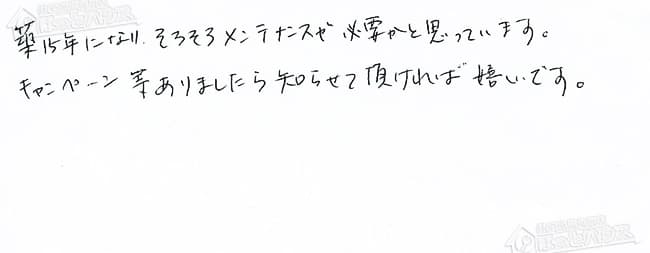 築15年になり、そろそろメンテナンスが必要かと思っています。
キャンペーン等ありましたら知らせて頂ければ嬉しいです。